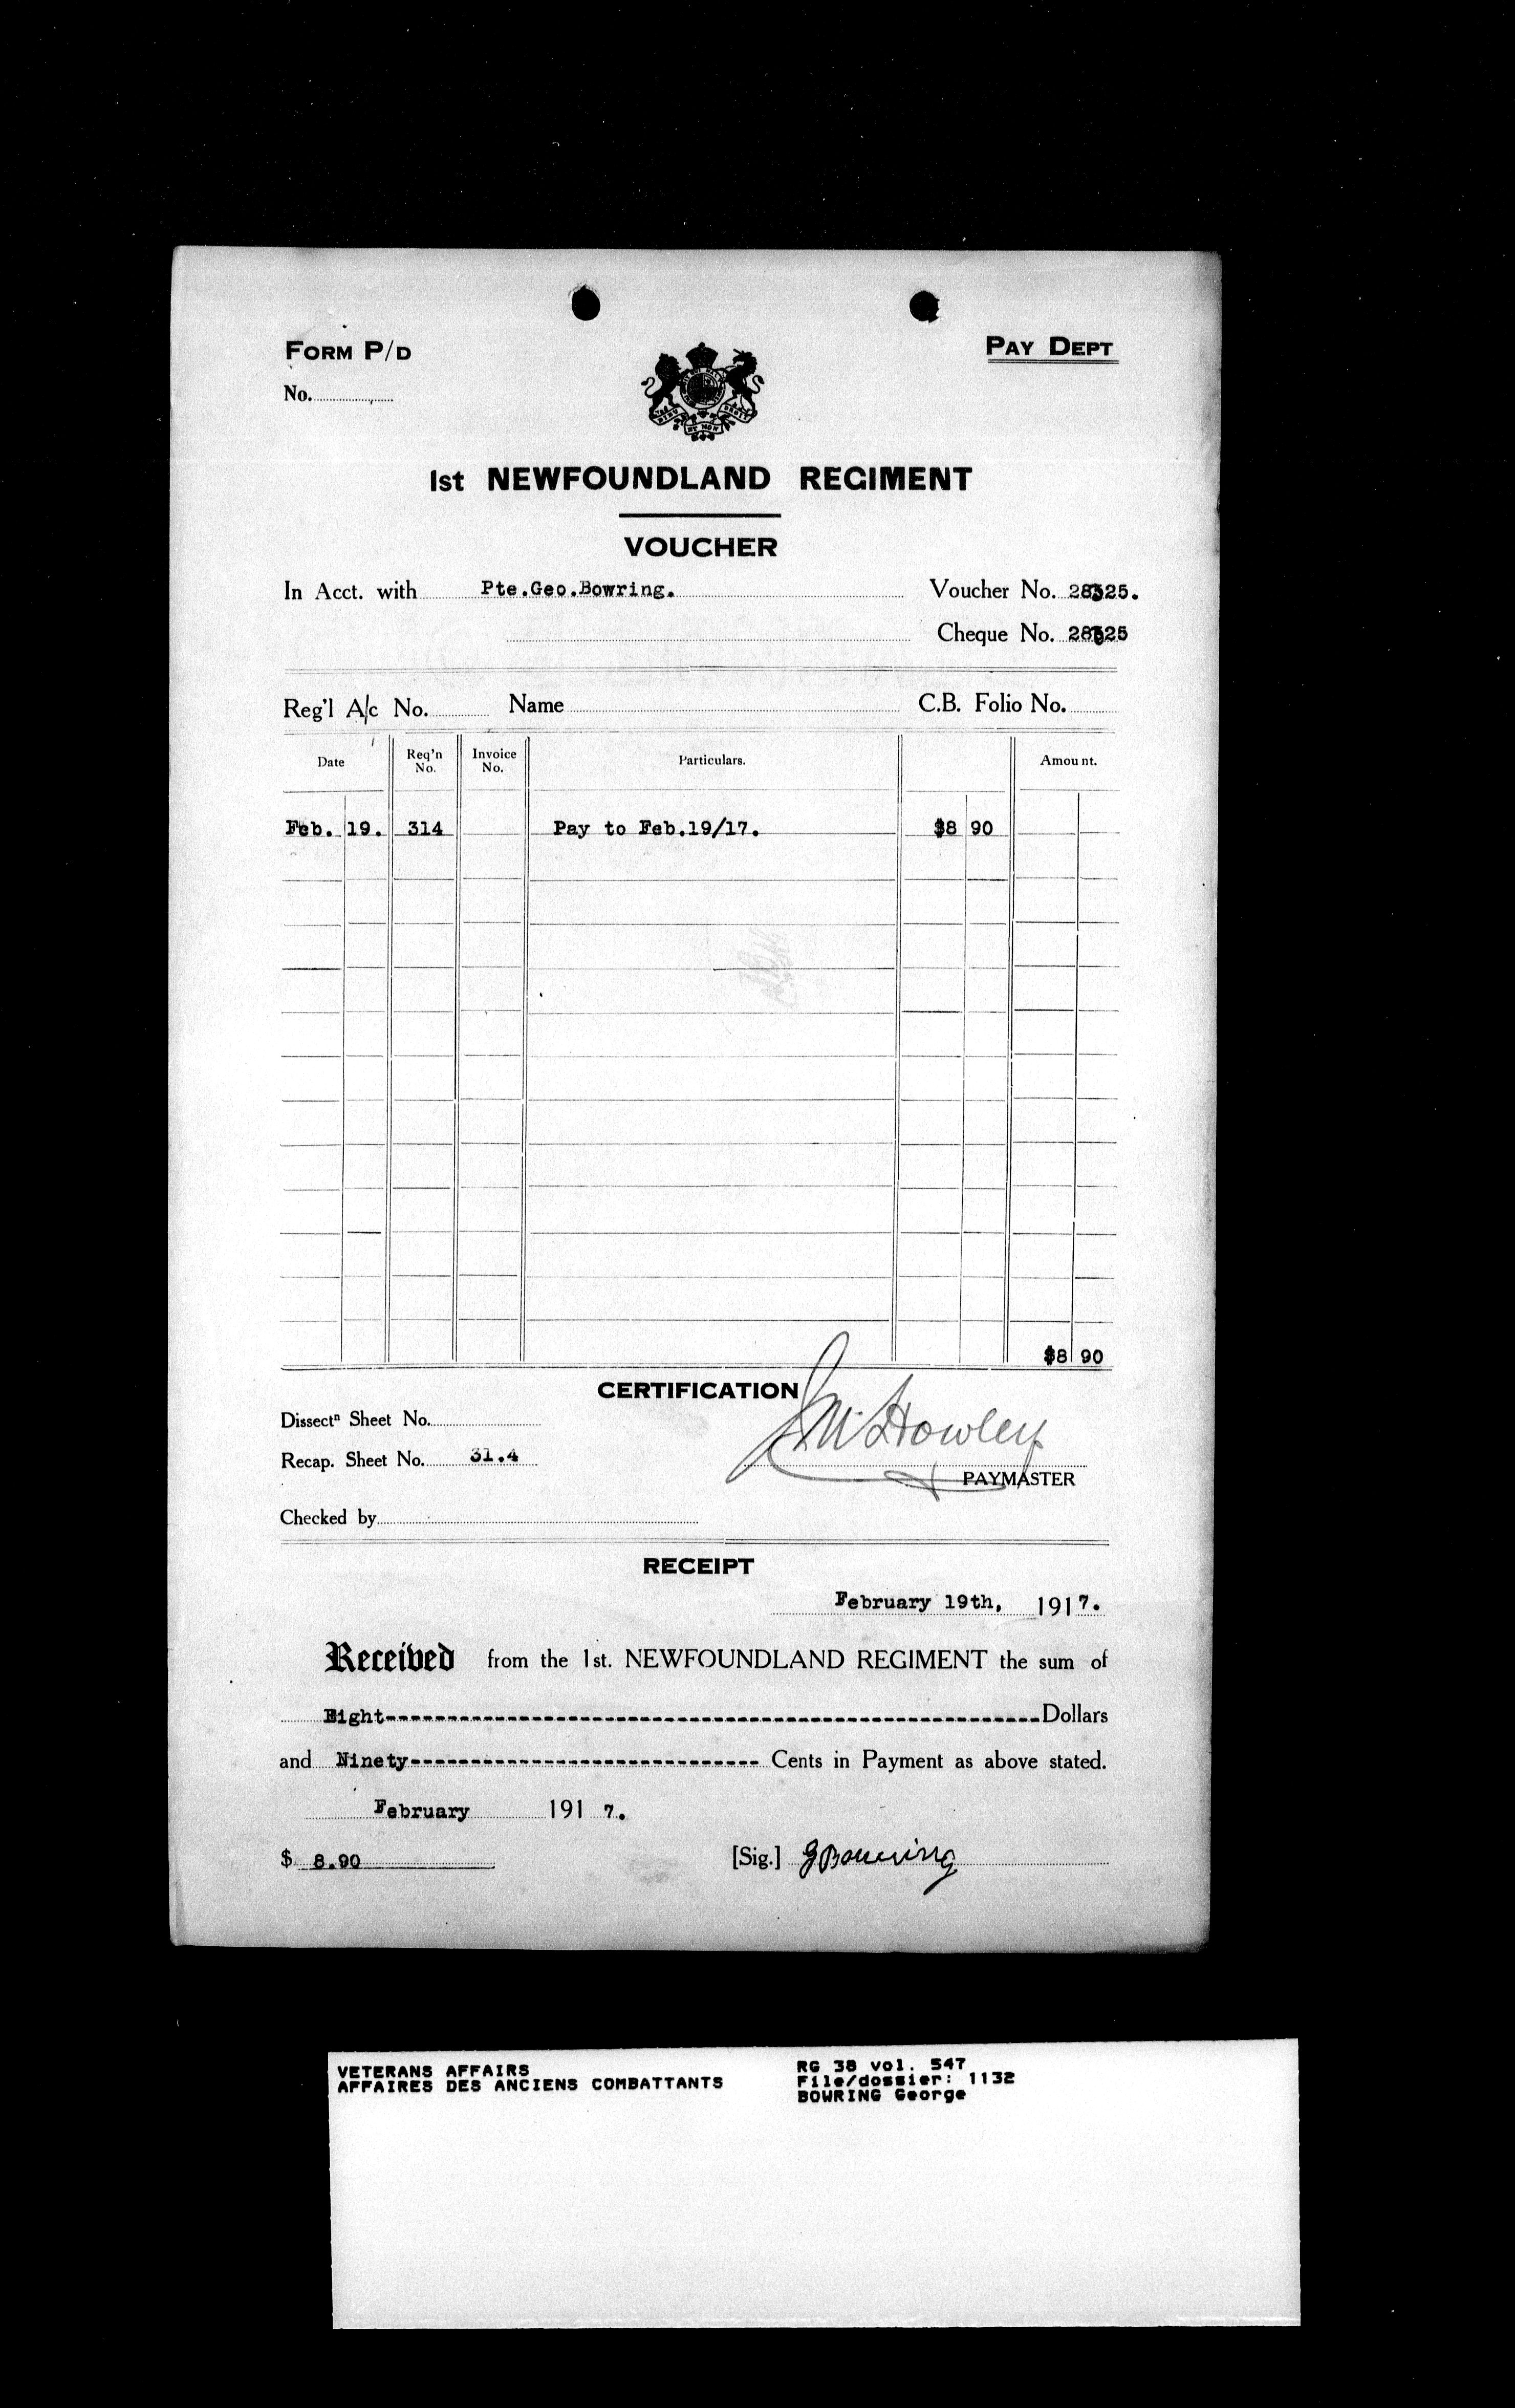 FORM P/D
PAY DEPT
No.
1st NEWFOUNDLAND REGIMENT
VOUCHER
In Acct. with Pte.Geo.Bowring. Voucher No.
Cheque No.
Reg'l A/c No. Name C.B. Folio No.
Date Req'n No. Invoice No. Particulars. Amount.
Feb. 19. 314 Pay to Feb.19/17. $8 90
$8 90
CERTIFICATION
Dissectn Sheet No.
Recap. Sheet No. 31.4
J M Howley
PAYMASTER
Checked by
RECEIPT
February 19th, 1917.
Received from the 1st. NEWFOUNDLAND REGIMENT the sum of
Eight------------------------------------------------------Dollars
and Ninety----------------------------- Cents in Payment as above stated.
February 191 7.
$ 8.90 [Sig.] G Bowring
VETERANS AFFAIRS RG 38 vol. 547
AFFAIRES DES ANCIENS COMBATTANTS File/dossier: 1132
BOWRING George